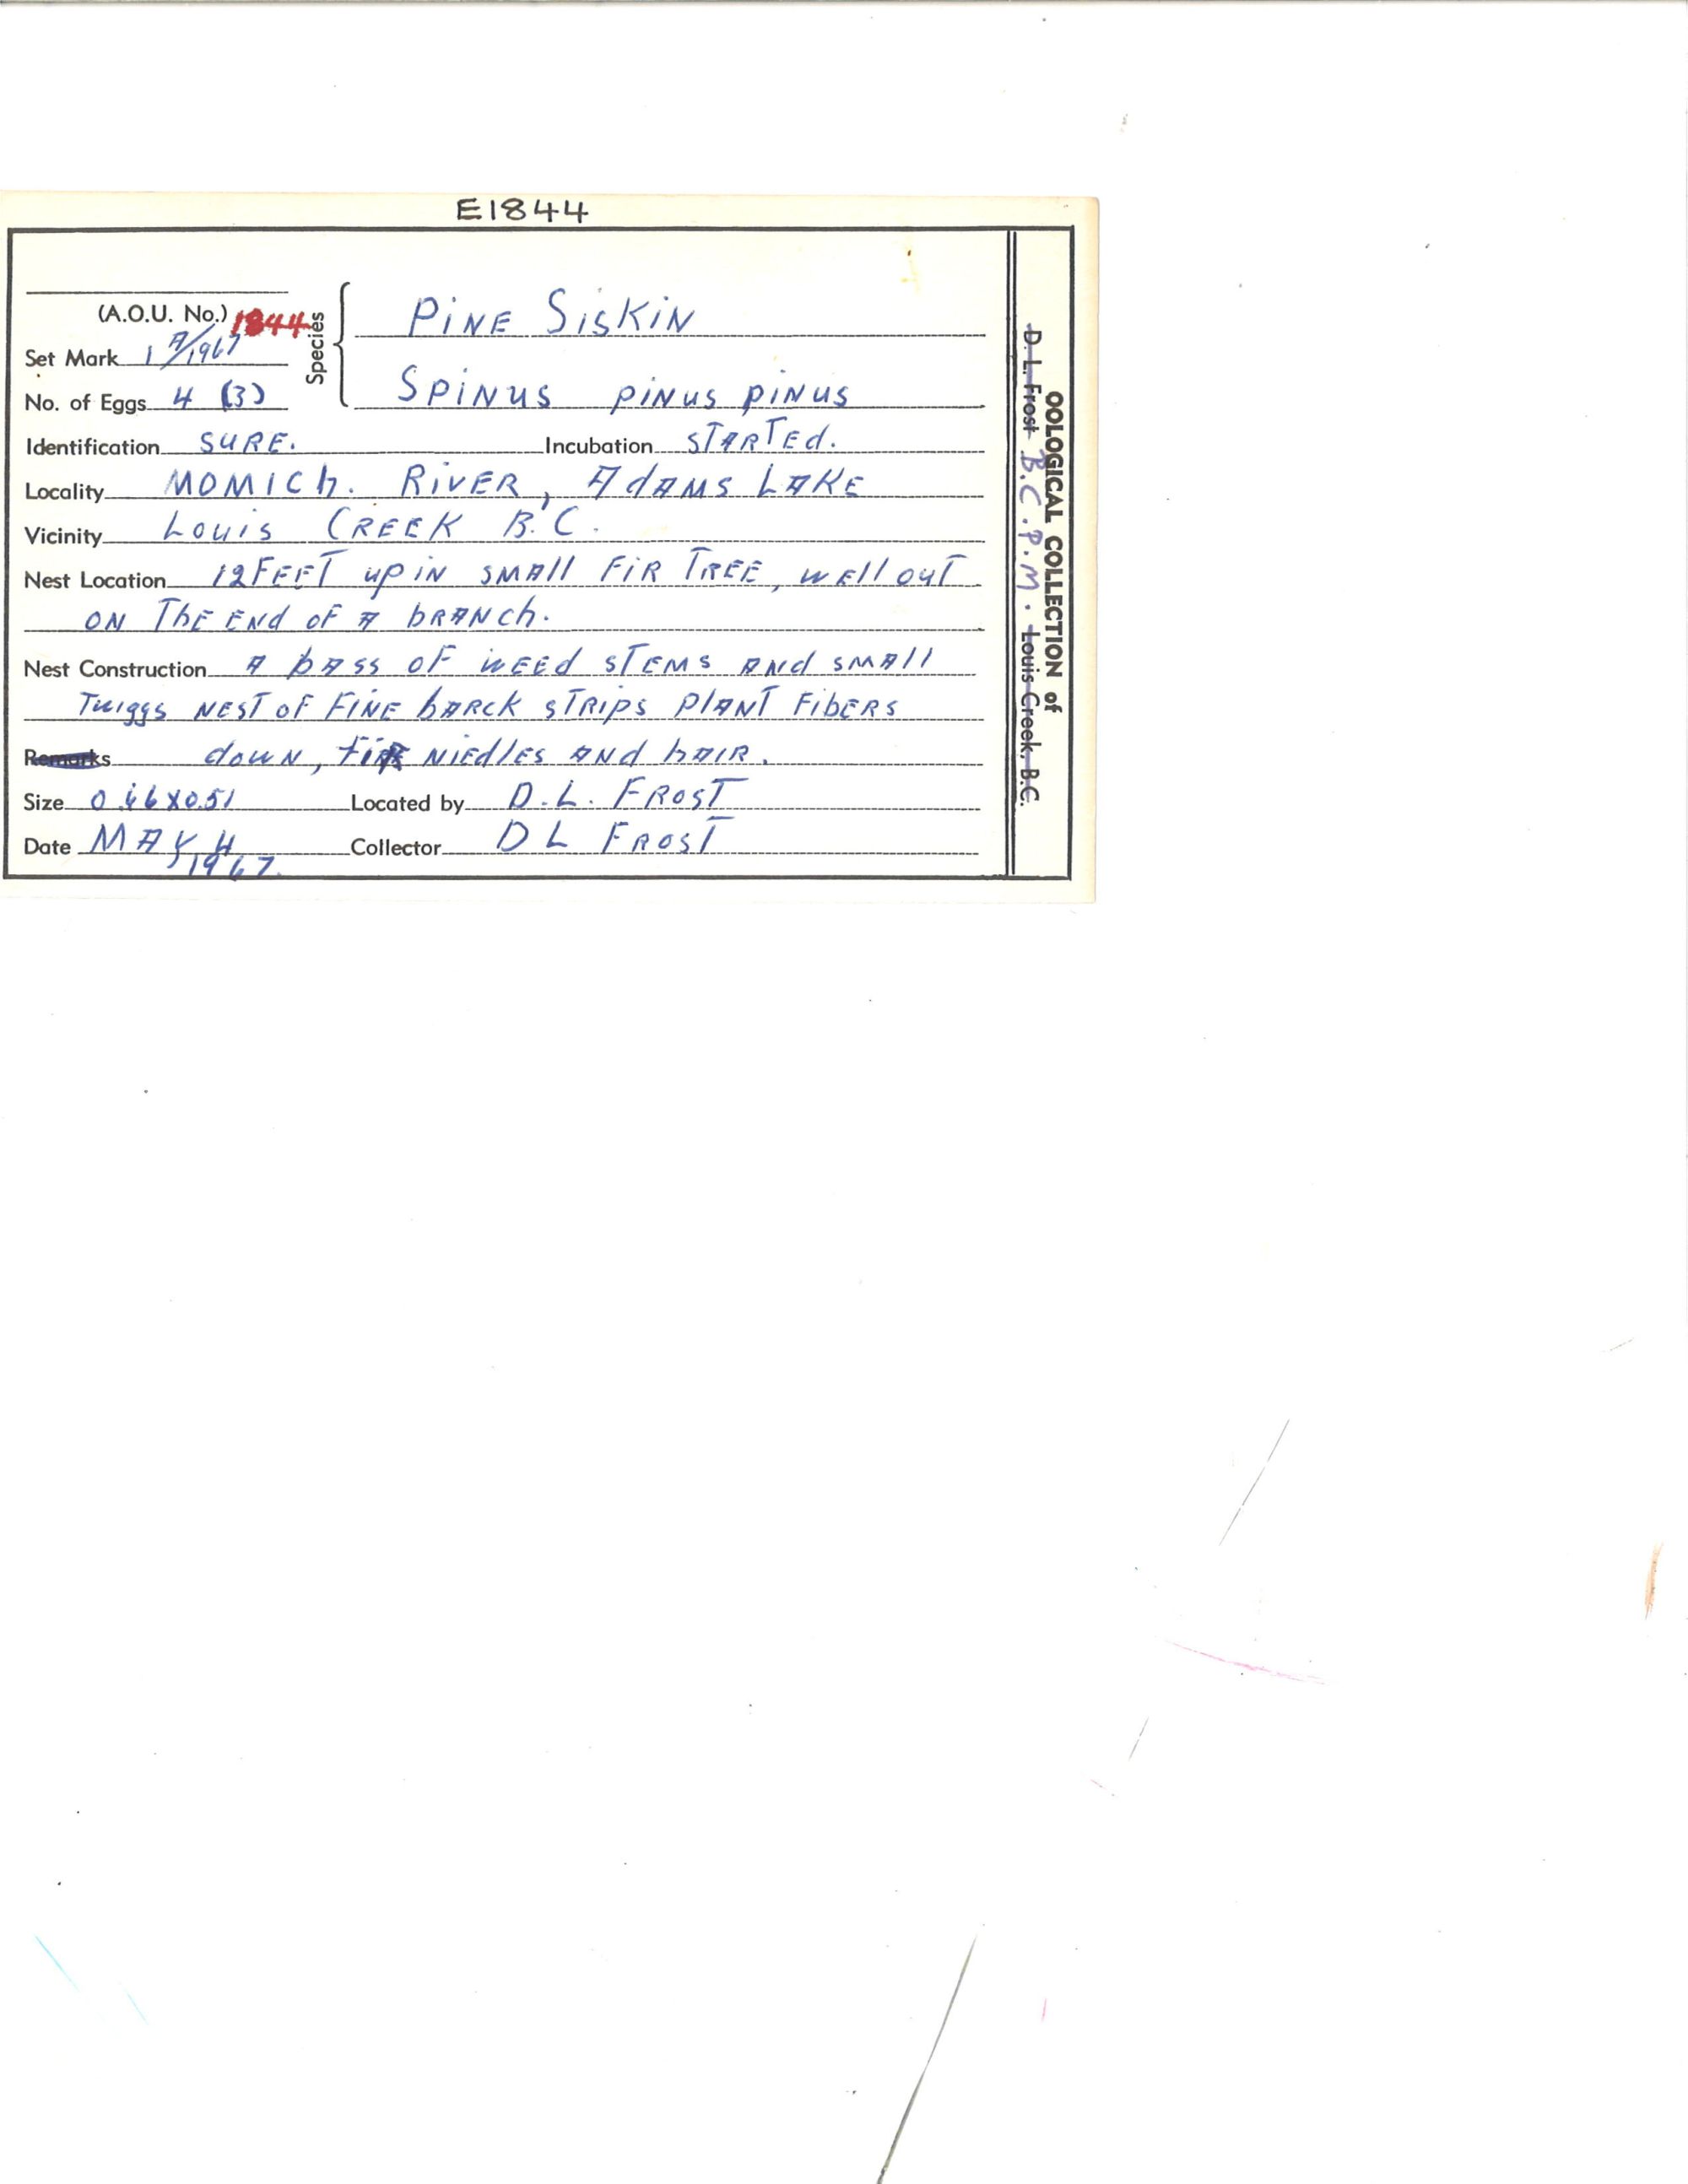 E1844
(A.O.U. No.) 1844
Set Mark 1 A/1967
No. of Eggs 4 (3)
Species
PINE SISKIN
SPINUS PINUS PINUS
Identification SURE. Incubation STARTED.
Locality MOMICh. RIVER, AdAMS LAKE
Vicinity Louis CREEK B.C.
Nest Location 12 FEET up IN SMAll FIR TREE, WEll ouT
ON ThE ENd OF A bRANCh.
Nest Construction A bASS OF WEEd STEMS ANd SMAll
Twiggs NEST OF FINE bARCK STRIPS PlANT FibERS
Remarks down, FIR NIEdlES ANd hAIR.
Size 0.66X0.51 Located by D.L. FROST
Date MAY 4 1967. Collector D L FROST
OOLOGICAL COLLECTION of
D. L. Frost B.C.P.M. Louis Creek, B.C.